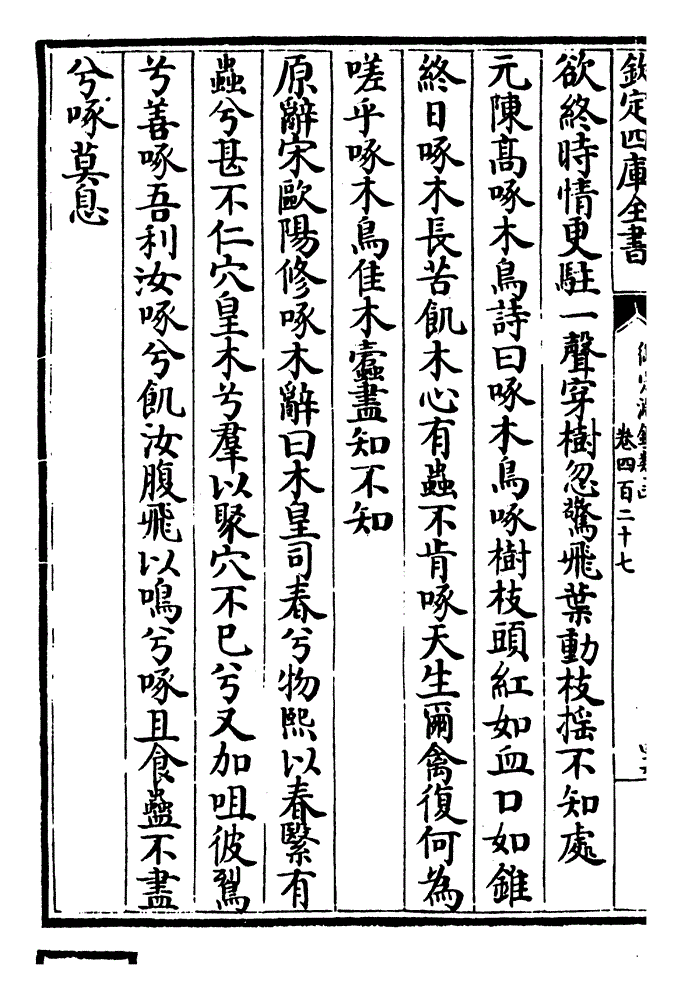 欽定四庫全書
卷四百二十七
欲終時情更駐一聲穿樹忽驚飛葉動枝揺不知處
元陳髙啄木鳥詩曰啄木鳥啄樹枝頭紅如血口如錐
終日啄木長苦飢木心有蟲不肯啄天生爾禽復何為
嗟乎啄木鳥隹木蠹盡知不知
原辭宋歐陽修啄木辭曰木皇司春兮物熙以春緊有
蟲兮甚不仁穴皇木兮羣以聚穴不已兮又加咀彼鴷
兮善啄吾利汝啄兮飢汝腹飛以鳴兮啄且食蠱不盡
兮啄莫息